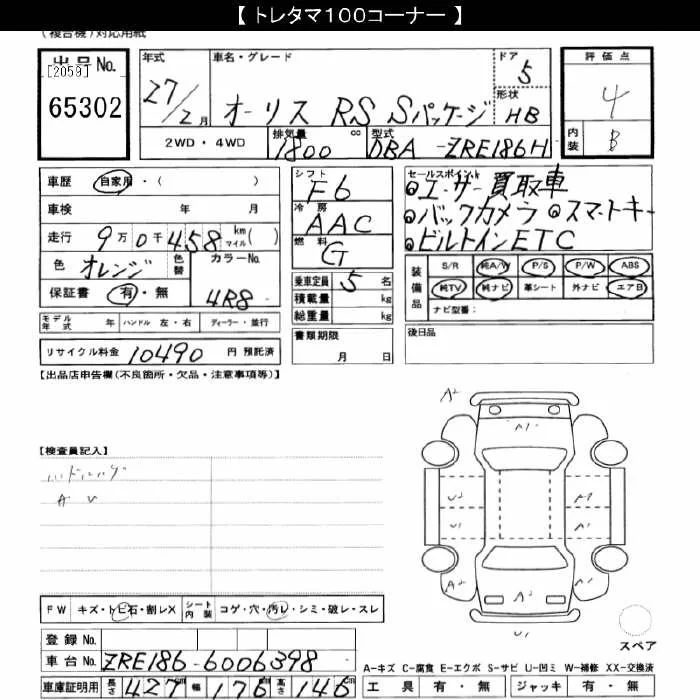 【 トレタマ100コーナー 】
(複合機)対応用紙
出品No.
[2059]
65302
年式 27/2月
車名・グレード オーリス RS Sパッケージ
ドア 5
形状 HB
2WD・4WD
排気量 1800 cc
型式 DBA-ZRE186H
評価点 4
内装 B
車歴 自家用・( )
車検 年 月
走行 9万0千458 km マイル( )
色 オレンジ 色替
カラーNo. 4R8
保証書 有・無
モデル年式 年 ハンドル 左・右 ディーラー・並行
リサイクル料金 10490 円 預託済
シフト F6
冷房 AAC
燃料 G
乗車定員 5 名
積載量 kg
総重量 kg
書類期限 月 日
セールスポイント
ユーザー買取車
バックカメラ スマートキー
ビルトインETC
装備品
S/R 純A/W P/S P/W ABS
純TV 純ナビ 革シート 外ナビ エアB
ナビ型番:
後日品
【出品店申告欄(不良箇所・欠品・注意事項等)】
【検査員記入】
ハンドルハゲ
A U
A2
A1
U2
A1
U1
A1
A2
A2
A1
U1
スペア
FW キズ・トビ石・割レX
シート内装 コゲ・穴・汚レ・シミ・破レ・スレ
登録No.
車台No. ZRE186-6006398
車庫証明用 長さ 427 cm 幅 176 cm 高さ 146 cm
A-キズ C-腐食 E-エクボ S-サビ U-凹ミ W-補修 XX-交換済
工具 有・無 ジャッキ 有・無